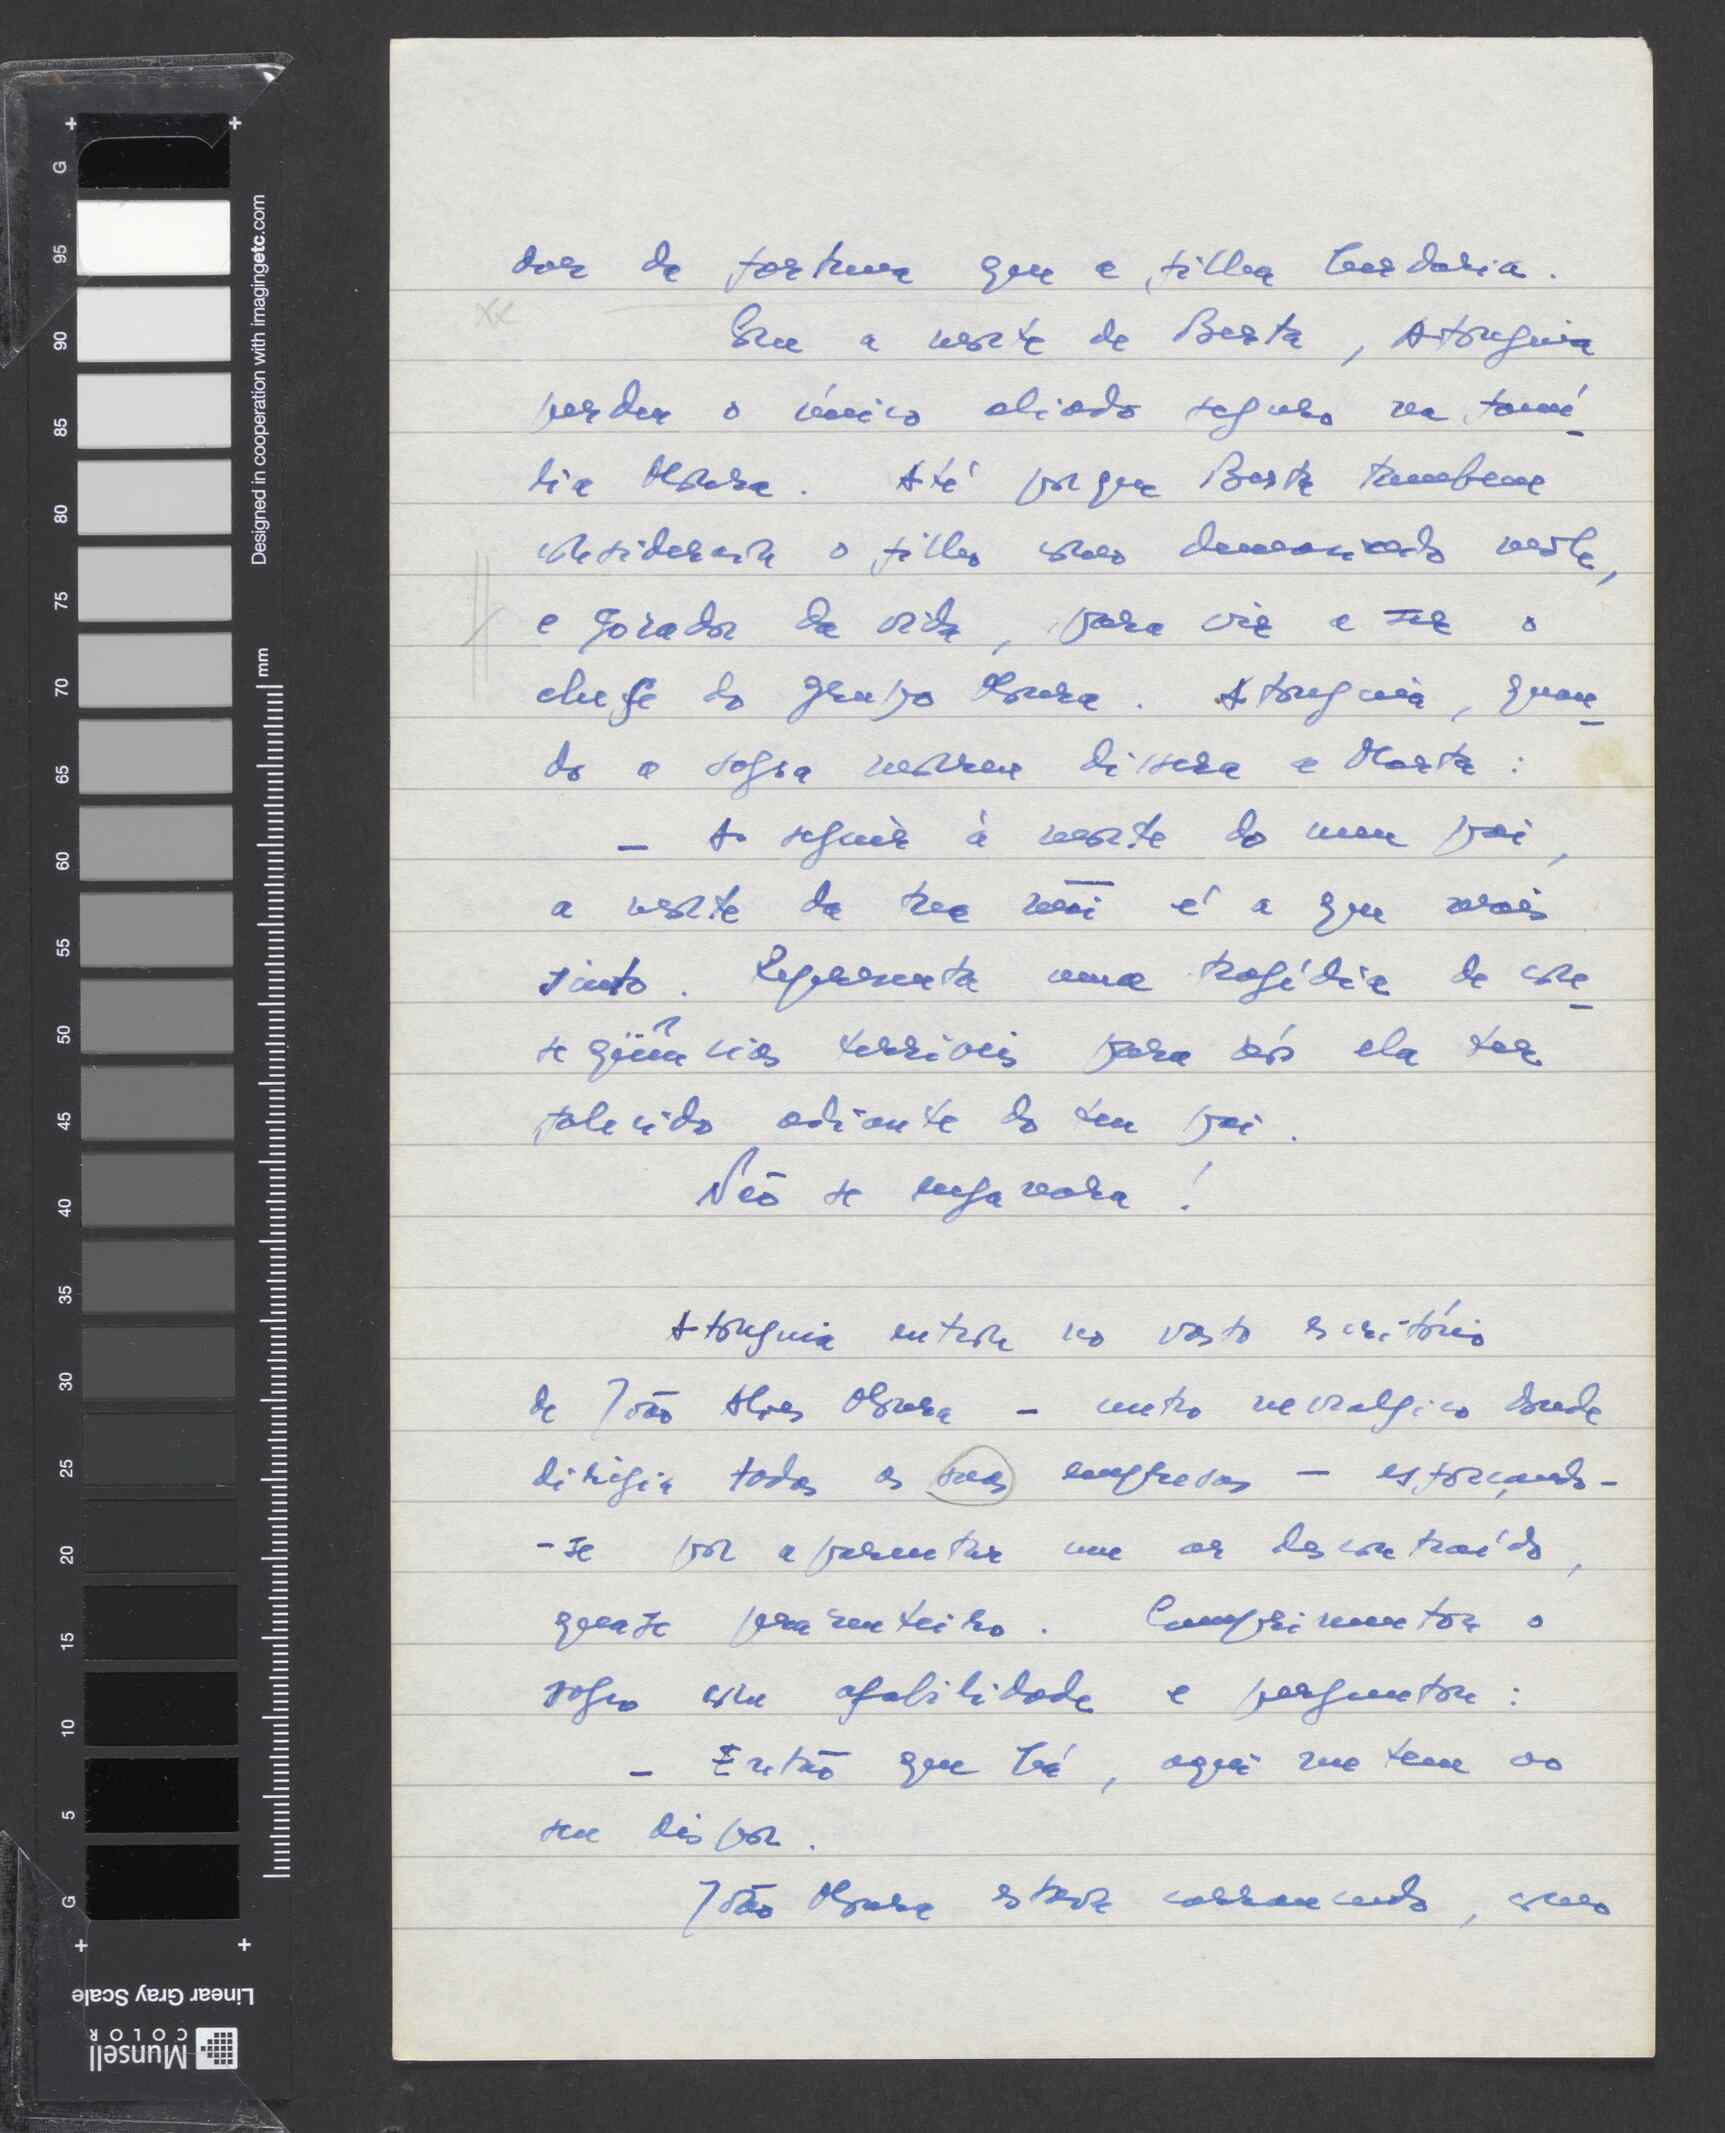 dor da fortuna que a filha herdaria.
Com a morte de Berta, Atouguia
perdeu o único aliado seguro na famí-
lia Moura. Até porque Berta também
considerava o filho como demasiado mole,
e gozador da vida, para vir a ser o
chefe do grupo Moura. Atouguia, quan-
do a sogra morreu dissera a Marta:
- A seguir à morte do meu pai,
a morte da tua mãi é a que mais
sinto. Representa uma tragédia de con-
seqüências terríveis para nós ela ter
falecido adiante do teu pai.
Não se enganara!
Atouguia entrou no vasto escritório
de João Alves Moura - centro nevralgico donde
dirigia todas as suas empresas - esforçando-
-se por aparentar um ar descontraído,
quase prazenteiro. Cumprimentou o
sogro com afabilidade e perguntou:
- Então que há, aqui me tem ao
seu dispor.
João Moura estava carrancudo, como
Designed in cooperation with imagingetc.com
mm
G 95 90 85 80 75 70 65 60 55 50 45 40 35 30 25 20 15 10 5 G
Linear Gray Scale
Munsell
COLOR